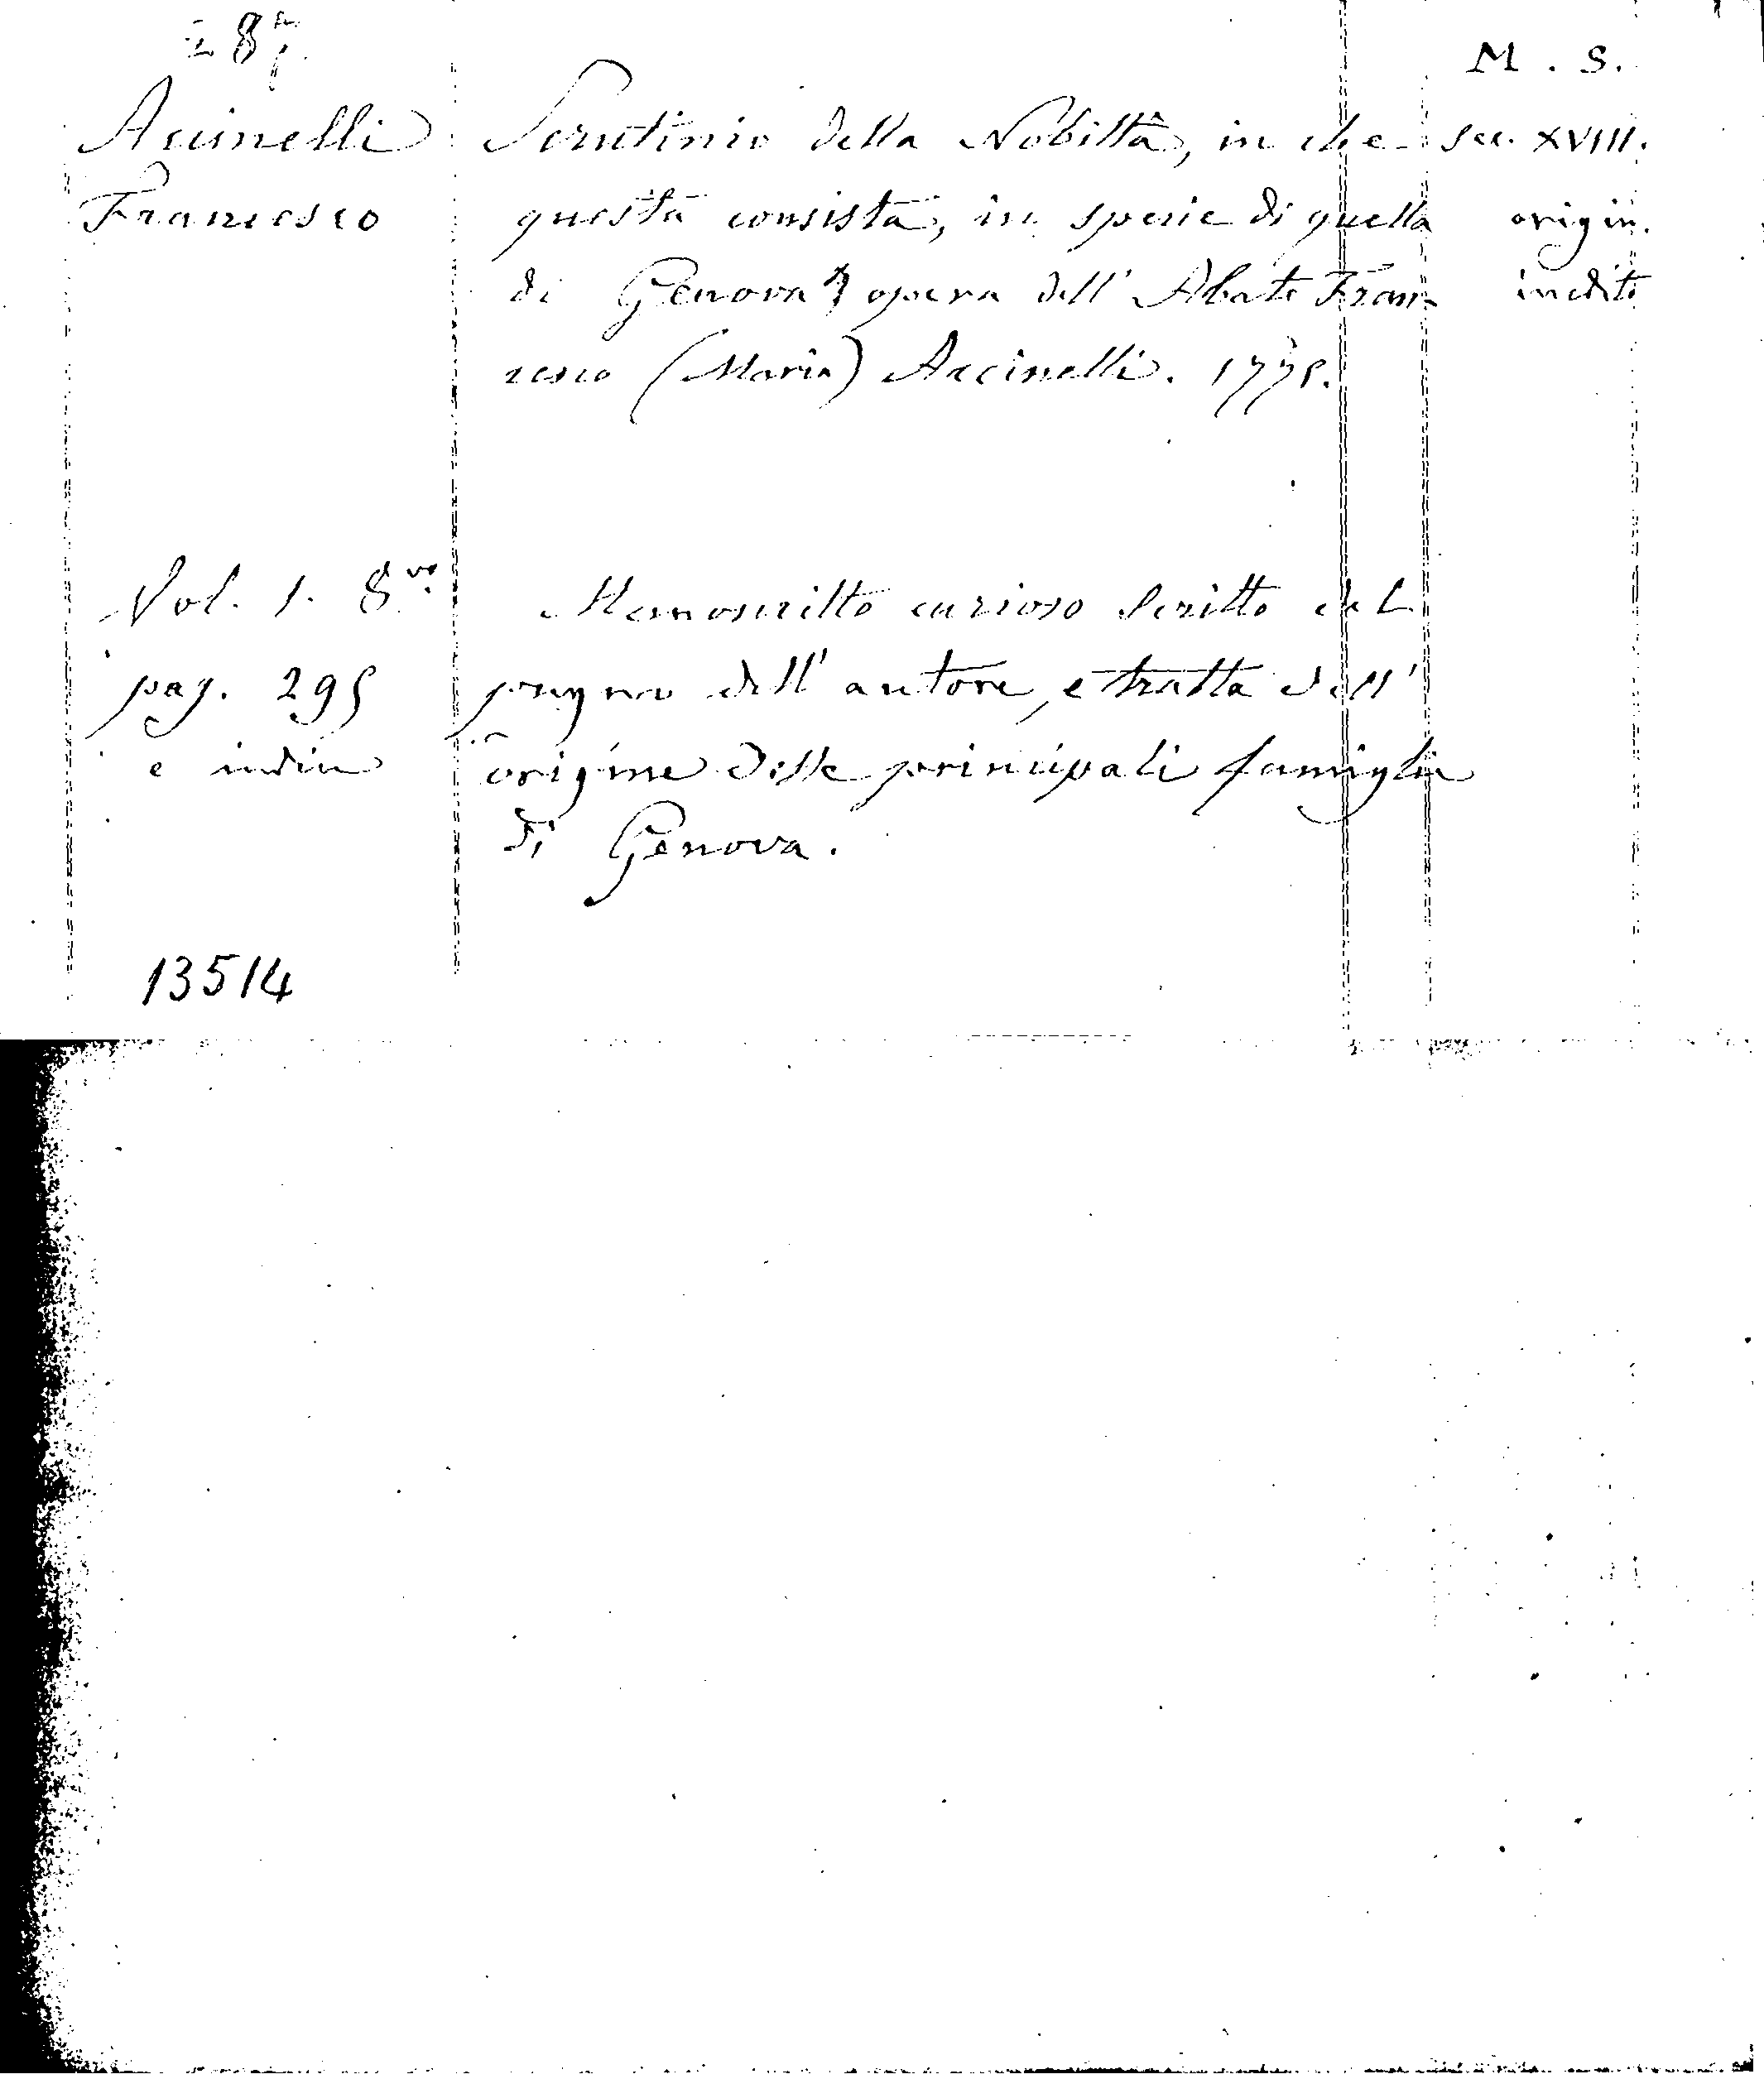 287.
M. S.
Acinelli Scrutinio della Nobiltà, in che sec. XVIII.
Francesco questa consista, in specie di quella origin.
di Genova opera dell' Abate Fran= inedito
cesco (Maria) Accinelli. 1775.
Vol. 1. 8.vo Manoscritto curioso scritto dal
pag. 295 pugno dell' autore, e tratta dell'
e indice origine delle principali famiglie
di Genova.
13514